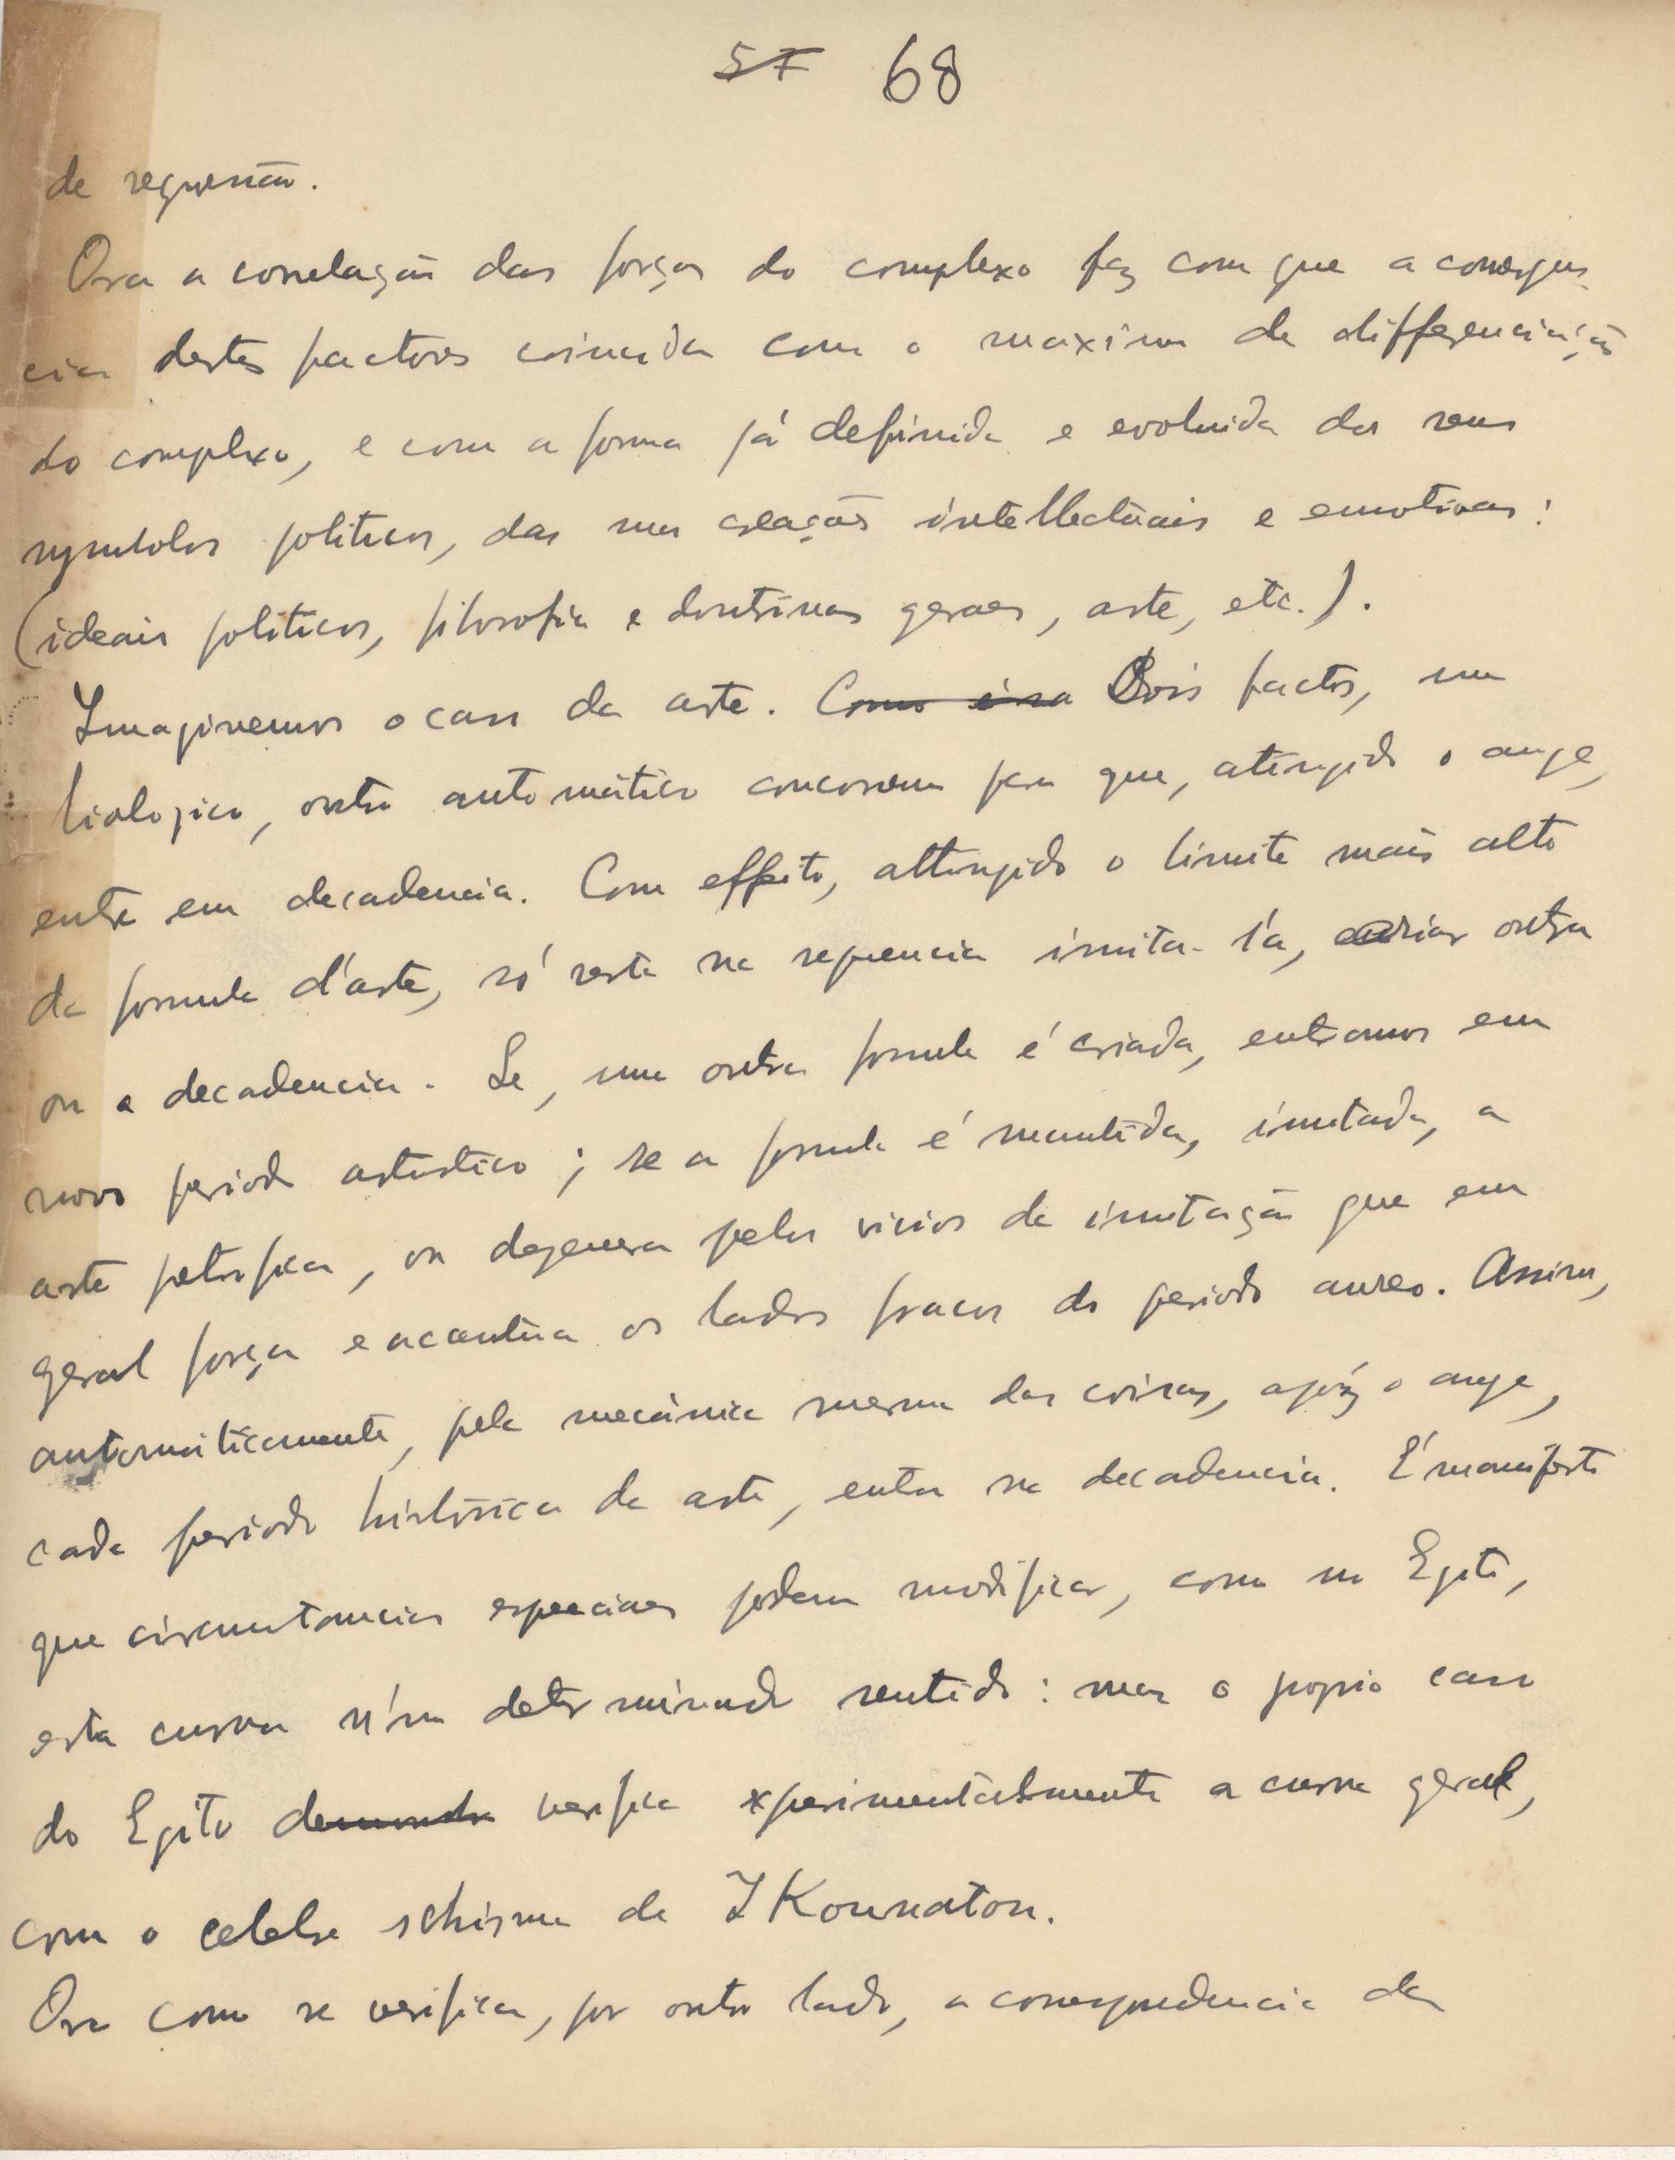 57 68
de regressão.
Ora a correlação das forças do complexo faz com que a consequen-
cia destes factores coincida com o maximo de differenciação
do complexo, e com a forma já definida e evoluida dos seus
symbolos politicos, das suas creações intellectuais e emotivas:
(ideais politicos, filosofia e doutrinas geraes, arte, etc.).
Imaginemos o caso da arte. Como essa Dois factos, um
biologico, outro automático concorrem para que, atingido o auge,
entre em decadencia. Com effeito, attingido o limite mais alto
da formula d'arte, só resta na sequencia imita-la, criar outra
ou a decadencia. Se, uma outra formula é criada, entramos em
novo periodo artistico; se a formula é mantida, imitada, a
arte petrifica, ou degenera pelos vicios da imitação que em
geral força e acentua os lados fracos do periodo aureo. Assim,
automáticamente, pela mecânica mesma das coisas, após o auge,
cada periodo histórico da arte, entra na decadencia. É manifesto
que circumstancias especiaes podem modificar, como no Egito,
esta curva n'um determinado sentido: mas o proprio caso
do Egito demonstra verifica experimentalmente a curva geral,
com o celebre schisma de IKounaton.
Ora como se verifica, por outro lado, a correspondencia das